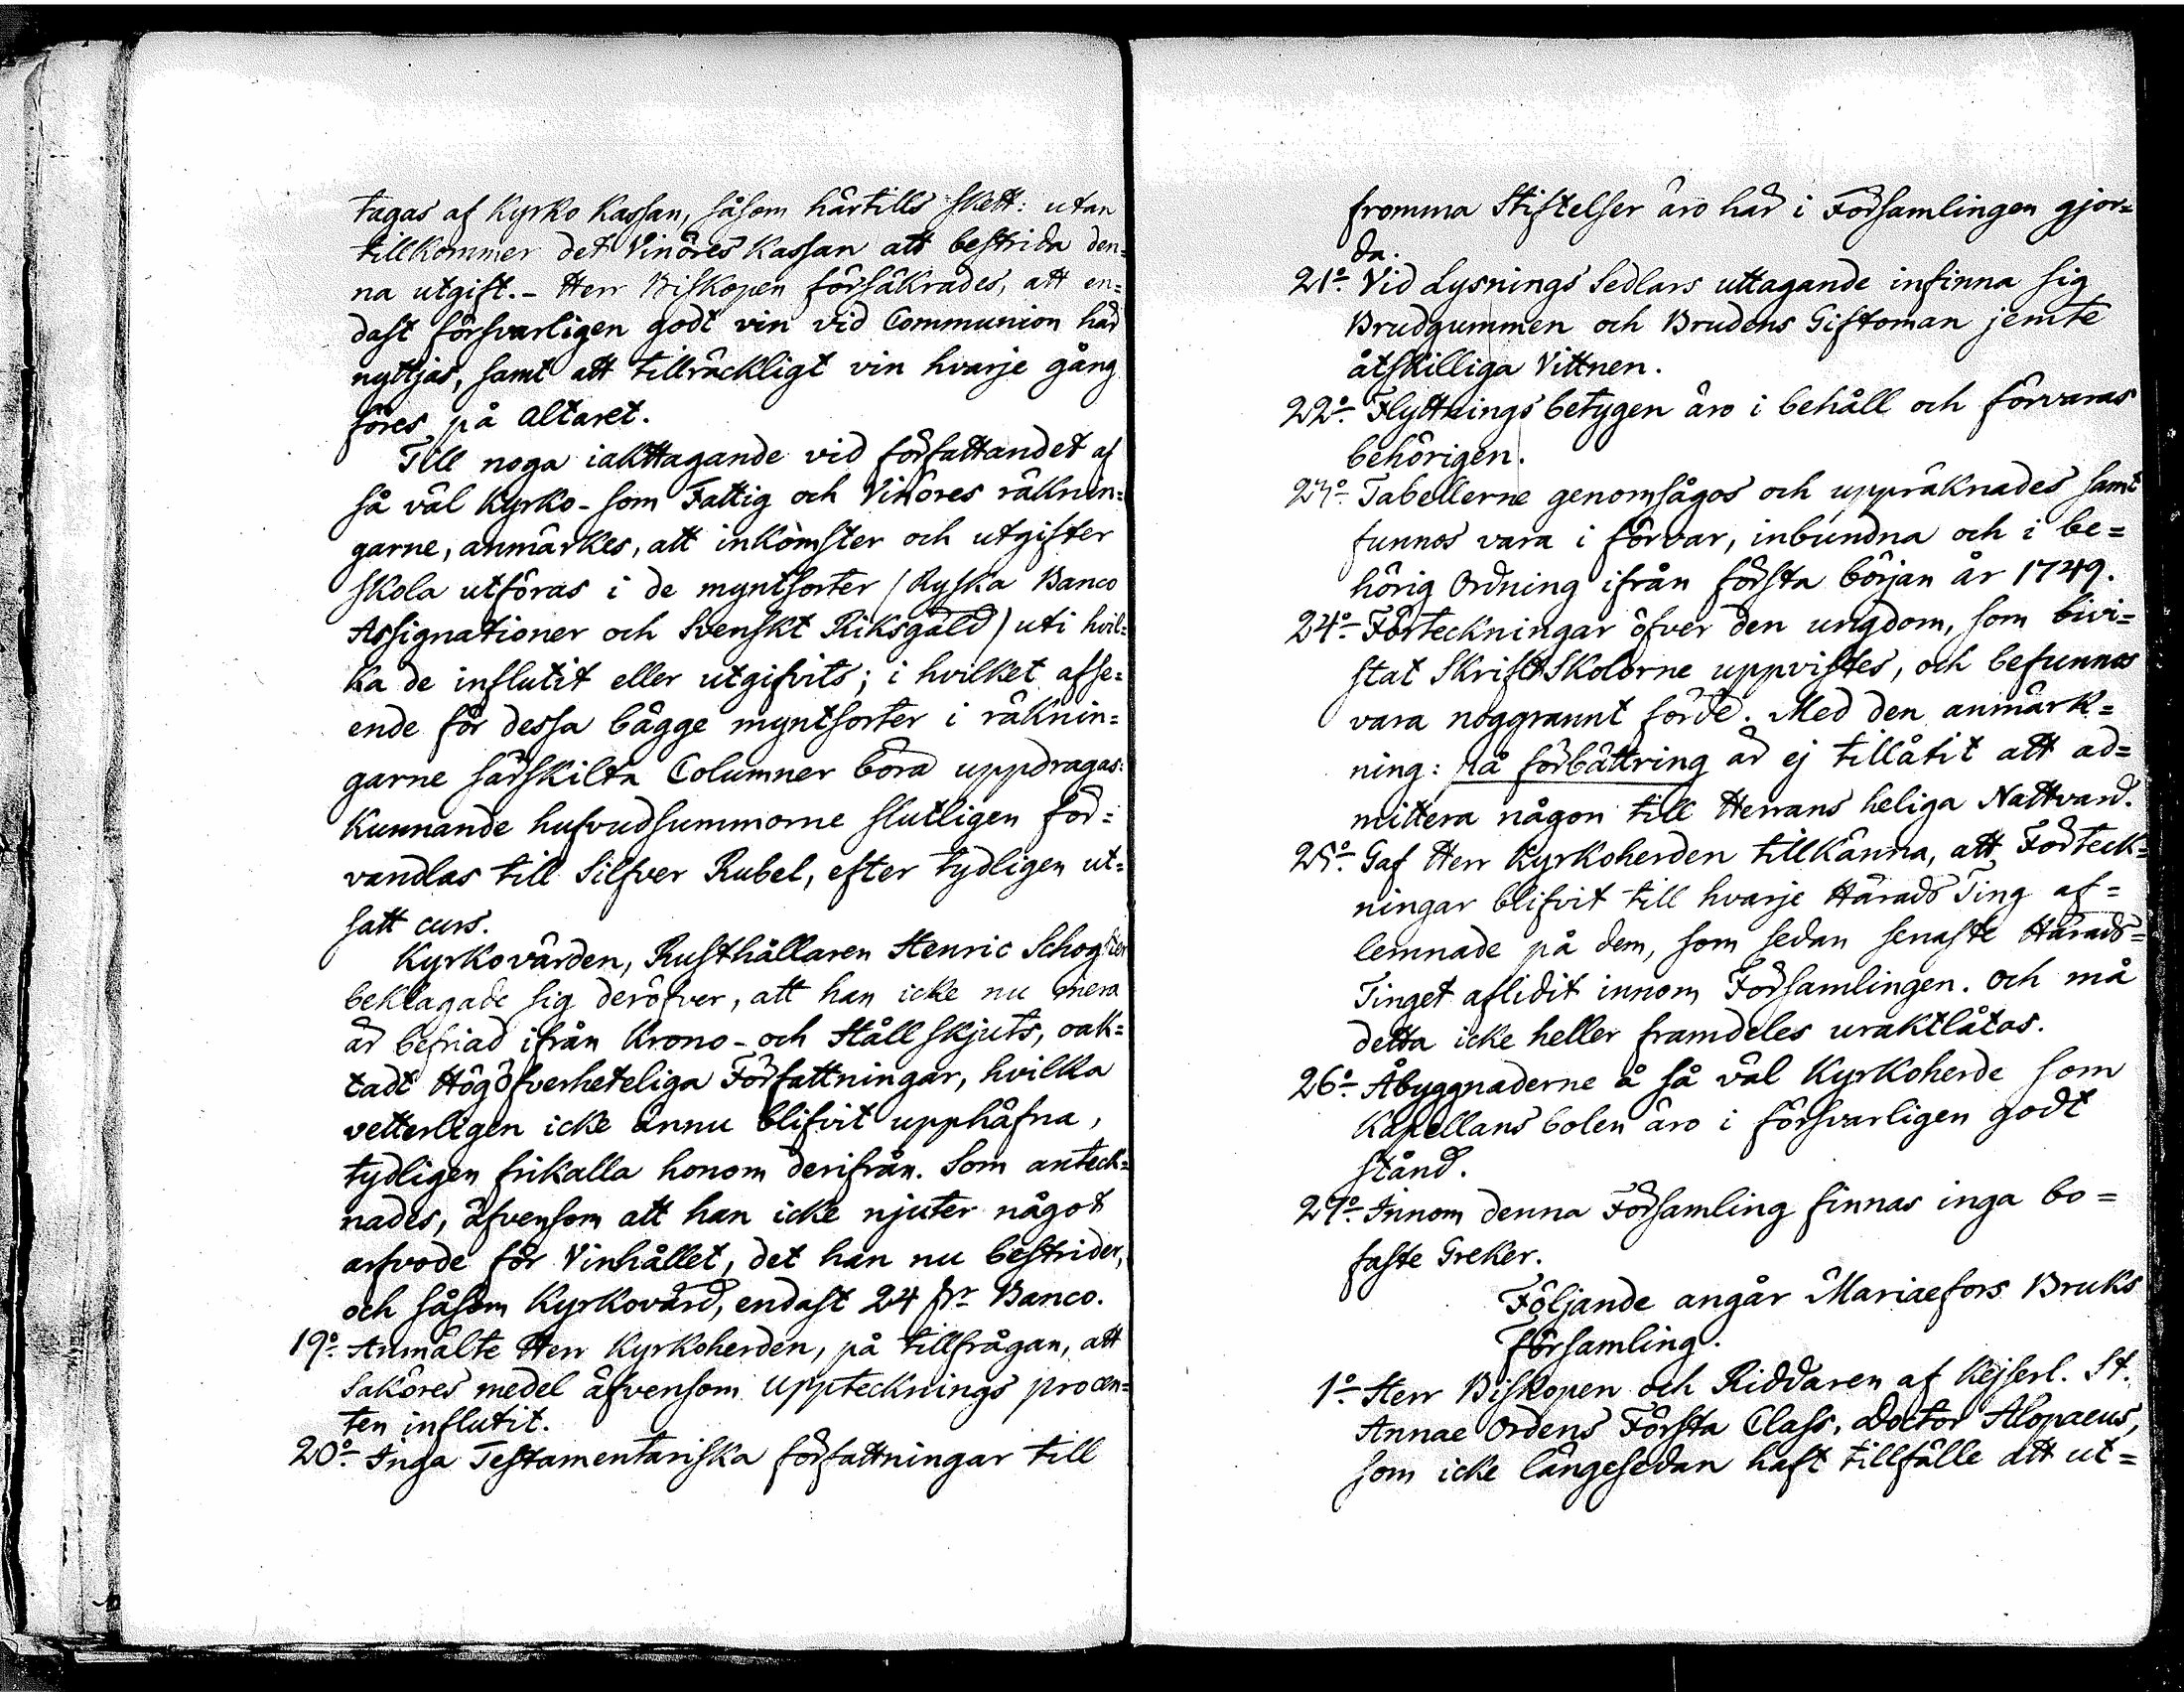 tagas af Kyrko Kassan, såsom härtills skett: utan
tillkommer det Vinöres Kassan att bestrida den=
na utgift. - Herr Biskopen försäkrades, att en=
dast försvarligen godt vin vid Communion här
nyttjas, samt att tillräckligt vin hvarje gång
föres på altaret.
Till noga iakttagande vid författandet af
så väl Kyrko- som Fattig och Vinöres räknin=
garne, anmärkes, att inkomster och utgifter
skola utföras i de myntsorter / Ryska Banco
Assignationer och Svenskt Riksgäld / uti hvil=
ka de influtit eller utgifvits; i hvilket afse=
ende för dessa bägge myntsorter i räknin=
garne särskilta Columner böra uppdragas:
kunnande hufvudsummorne slutligen för=
vandlas till Silfver Rubel, efter tydligen ut=
satt curs.
Kyrkovärden, Rusthållaren Henric Schogster
beklagade sig deröfver, att han icke nu mera
är befriad ifrån Krono- och Håll skjuts, oak=
tadt Högöfverheteliga Författningar, hvilka
vetterligen icke ännu blifvit upphäfna,
tydligen frikalla honom derifrån. Som anteck=
nades, äfvensom att han icke njuter något
arfvode för Vinhållet, det han nu bestrider,
och såsom Kyrkovärd, endast 24 sr Banco.
19o- Anmälte Herr Kyrkoherden, på tillfrågan, att
Saköres medel äfvensom Uppteckningsprocen=
ten influtit.
20o- Inga Testamentariska författningar till
fromma Stiftelser äro här i Församlingen gjor=
da.
21o- Vid Lysnings Sedlars uttagande infinna sig
Brudgummen och Brudens Giftoman jemte
åtskilliga Vittnen.
22o- Flyttningsbetygen äro i behåll och förvaras
behörigen.
23o- Tabellerne genomsågos och uppräknades samt
funnos vara i förvar, inbundna och i be=
hörig Ordning ifrån första början år 1749.
24o- Förteckningar öfver den ungdom, som bivi=
stat Skrift Skolorne uppvistes, och befunnos
vara noggrannt förde. Med den anmärk=
ning: på förbättring är ej tillåtit att ad=
mittera någon till Herrans heliga Nattvard.
25o- Gaf Herr Kyrkoherden tillkänna, att Förteck=
ningar blifvit till hvarje Härads Ting af=
lemnade på dem, som sedan senaste Härads=
Tinget aflidit innom Församlingen. och må
detta icke heller framdeles uraktlåtas.
26o- Åbyggnaderne å så väl Kyrkoherde som
Kapellans bolen äro i försvarligen godt
stånd.
27o- Innom denna Församling finnas inga bo=
faste Greker.
Följande angår Mariaefors Bruks
Församling.
1o- Herr Biskopen och Riddaren af Kejserl. St.
Annae Ordens Första Class, Doctor Alopaeus,
som icke längesedan haft tillfälle att ut=